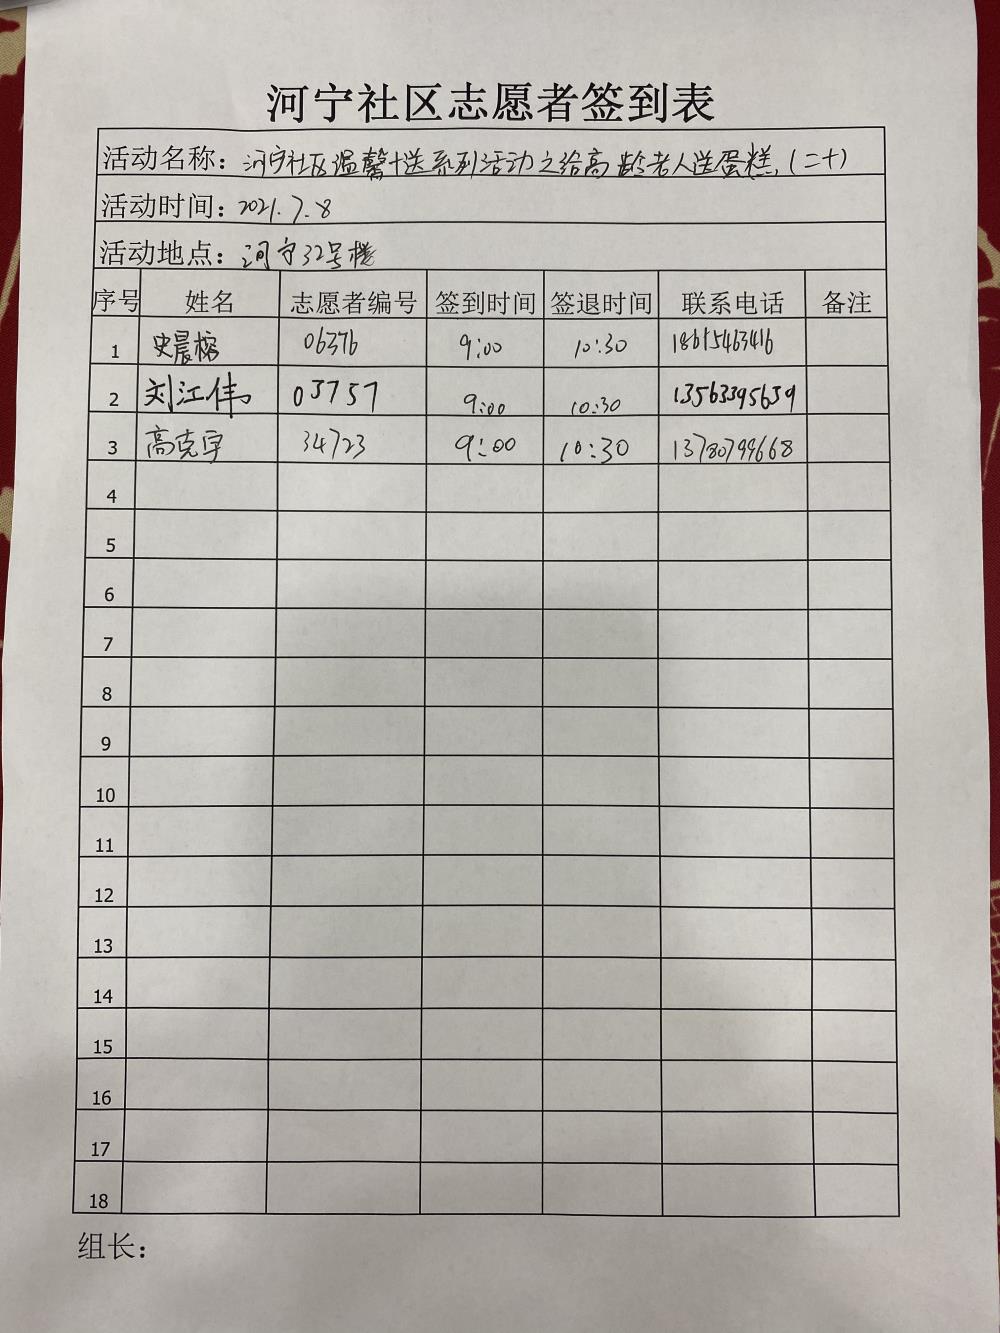 河宁社区志愿者签到表
活动名称：河宁社区温馨十送系列活动之给高龄老人送蛋糕（二十）
活动时间：2021.7.8
活动地点：河宁32号楼
序号 姓名 志愿者编号 签到时间 签退时间 联系电话 备注
1 史晨榕 06376 9:00 10:30 18615463416
2 刘江伟 03757 9:00 10:30 13563395639
3 高克宇 34723 9:00 10:30 13780799668
4
5
6
7
8
9
10
11
12
13
14
15
16
17
18
组长：